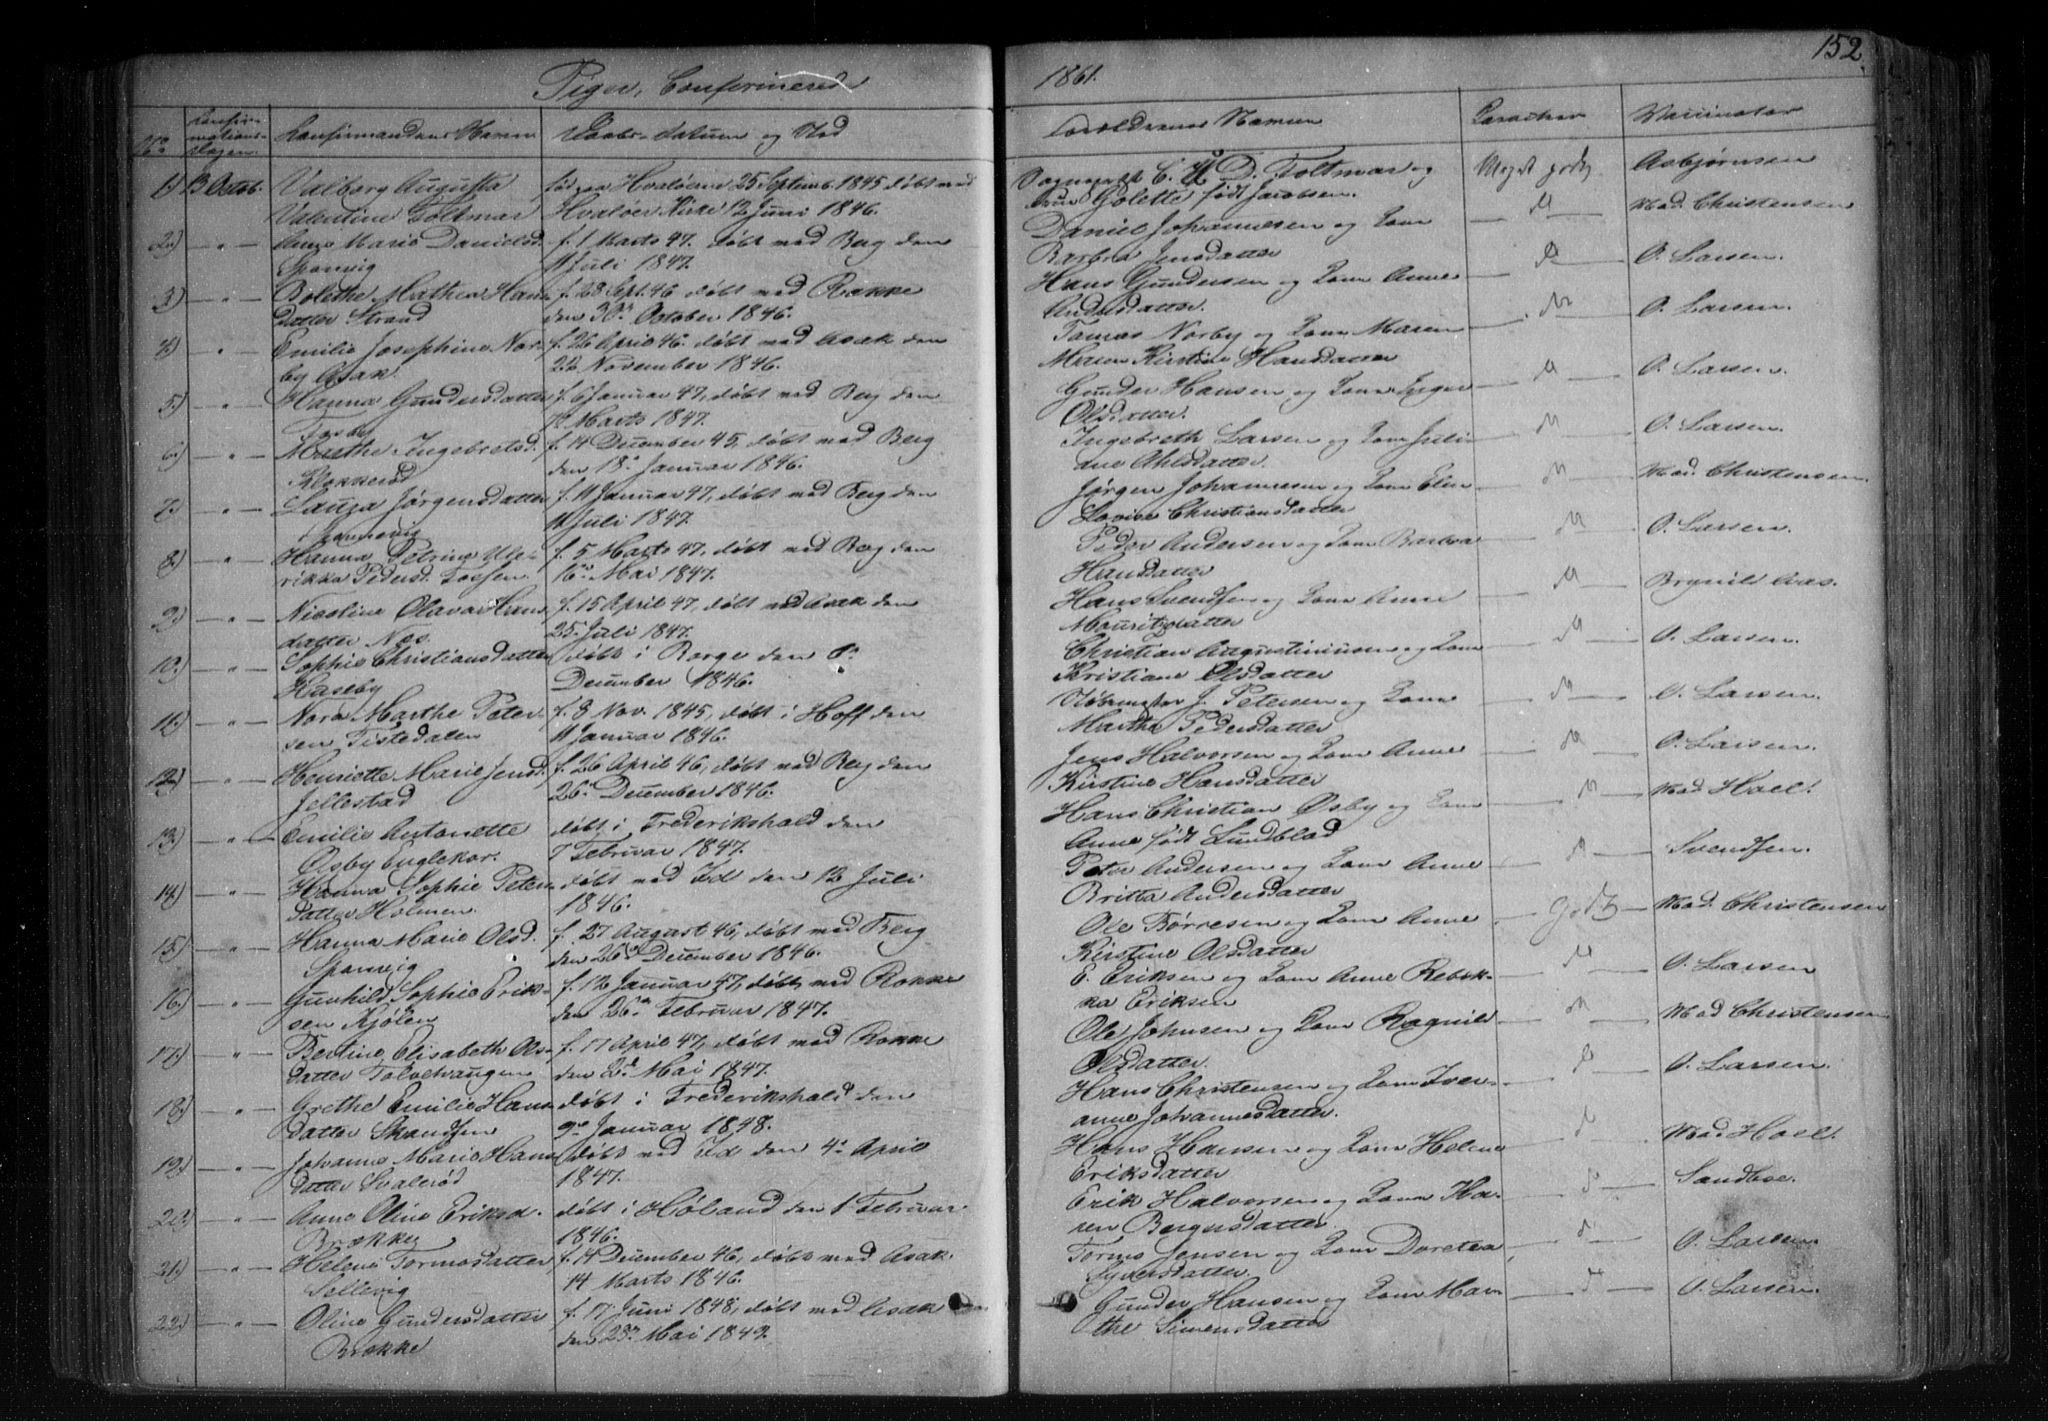 152.
Piger, Confirmerede
1861.
No
Konfir-
mations-
Dagen.
Konfirmandens Navn
Daabs-datum og Sted
Forældrenes Navne
Karakter
Vaccinator
1) 3 Octob. Valborg Augusta
Valentine Foltmar
født paa Hvaløerne 25 Septemb. 1845 døbt ved
Hvaløer Kirke 12 Juni 1846.
Sogneprest C. H. D. Foltmar og
Frue Golette født Jacobsen.
Meget godt
Asbjørnsen
2.) — " — Anne Marie Danielsd.
Sponvig
f. 1 Marts 47. døbt ved Berg den
11 Juli 1847.
Daniel Johannesen og Kone
Barbra Jensdatter
M
Mad. Christensen
3) — " — Bolethe Mathea Hans
datter Strand
f. 28 Sept. 46 døbt ved Rokke
den 30 October 1846.
Hans Gundersen og Kone Anne
Andersdatter.
O. Larsen.
4.) — " — Emilie Josephine Nor-
by Asak.
f. 26 April 46. døbt ved Asak den
22 November 1846.
Tomas Norby og Kone Maren
Maren Kirstine Hansdatter
M
O. Larsen.
5.) — " — Hanna Gundersdatter
f. 6 Januar 47, døbt ved Berg den
Marts 1847.
Gunder Hansen og Kone Inger
Olsdatter.
M
O. Larsen.
6.) — " — Marthe Ingebretsd.
Klokkerød
f. 14 December 45, døbt ved Berg
den 18. Januar 1846.
Ingebreth Larsen og Kone Juli-
ane Ahlsdatter.
M
O. Larsen.
7.) — " — Lauza Jørgensdatter
f. 11 Januar 47, døbt ved Berg den
11 Juli 1847.
Jørgen Johannesen og Kone Elen
Lovise Christiansdatter
M
Mad. Christensen.
8.) — " — Hanna Petrine Ule-
rikka Pedersd. Fossen.
f. 5 Marts 47, døbt ved Berg den
16 Mai 1847.
Peder Andersen og Kone Barbra
Hansdatter
M
O. Larsen.
9.) — " — Nicoline Olava Hans
datter Næs.
f. 15 April 47, døbt ved Asak den
25 Juli 1847.
Hans Svendsen og Kone Anne
Mauritzdatter
M
Brynild Aas.
10.) — " — Sophie Christiansdatter
Haseby
døbt i Borge den
December 1846.
Christian Augustinussen og Kone
Kristiane Olsdatter
M
O. Larsen.
11.) — " — Nora Marthe Peter
sen Tistedalen
f. 8 Nov. 1845, døbt i Hoff den
11 Januar 1846.
J. Petersen og Kone
Martha Pedersdatter
M
O. Larsen.
12) — " — Henriette Marie Jensd.
Jellestad
f. 26 April 46, døbt ved Berg den
26. December 1846.
Jens Halvorsen og Kone Anne
Kirstine Hansdatter
M
O. Larsen.
13.) — " — Emilie Antonette
Øsby Englekor.
døbt i Frederikshald den
7 Februar 1847.
Hans Christian Øsby og Kone
Anne født Lundblad
M
Mad. Hoel.
14.) — " — Hanna Sophie Peters
datter Holmen.
døbt ved Id den 12 Juli
1846.
Peter Andersen og Kone Anne
Britta Andersdatter
M
Svendsen.
15.) — " — Hanna Marie Olsd.
Sponvig
f. 27 August 46, døbt ved Berg
den 26 December 1846.
Ole Tørresen og Kone Anne
Kirstine Olsdatter
Godt
Mad. Christensen
16.) — " — Gunhild Sophie Erik-
sen Kjølen
f. 12 Januar 47, døbt ved Rokke
den 26 Februar 1847.
E. Eriksen og Kone Anne Rebek-
ka Eriksen
M
O. Larsen
17.) — " — Bertine Elisabeth Ols-
datter Tolvehaugen
f. 17 April 47, døbt ved Rokke
den 2 Mai 1847.
Ole Johnsen og Kone Ragnild
Olsdatter.
M
Mad Christensen
18.) — " — Grethe Emilie Hans
datter Skandsen
døbt i Frederikshald den
9 Januar 1848.
Hans Christensen og Kone Iver-
anne Johannesdatter.
O. Larsen.
19.) — " — Johanne Marie Hans
datter Svalerød
døbt ved Id den 4. April
1847.
Hans Hansen og Kone Helene
Eriksdatter
Mad. Hoel.
20.) — " — Anne Oline Eriksd.
Brække
døbt i Høland den 1 Februar
1846.
Erik Halvorsen og Kone Ka-
ren Bergersdatter.
Sandboe.
21.) — " — Helene Tormosdatter
Sellevig
f. 14 December 46, døbt ved Asak
14 Marts 1846.
Tormo Jensen og Kone Doretea
Syversdatter.
O. Larsen.
22.) — " — Oline Gundersdatter
Brække
f. 17 Juni 1848, døbt ved Asak
den 28 Mai 1849.
Gunder Hansen og Kone Mar-
the Simensdatter
O. Larsen.